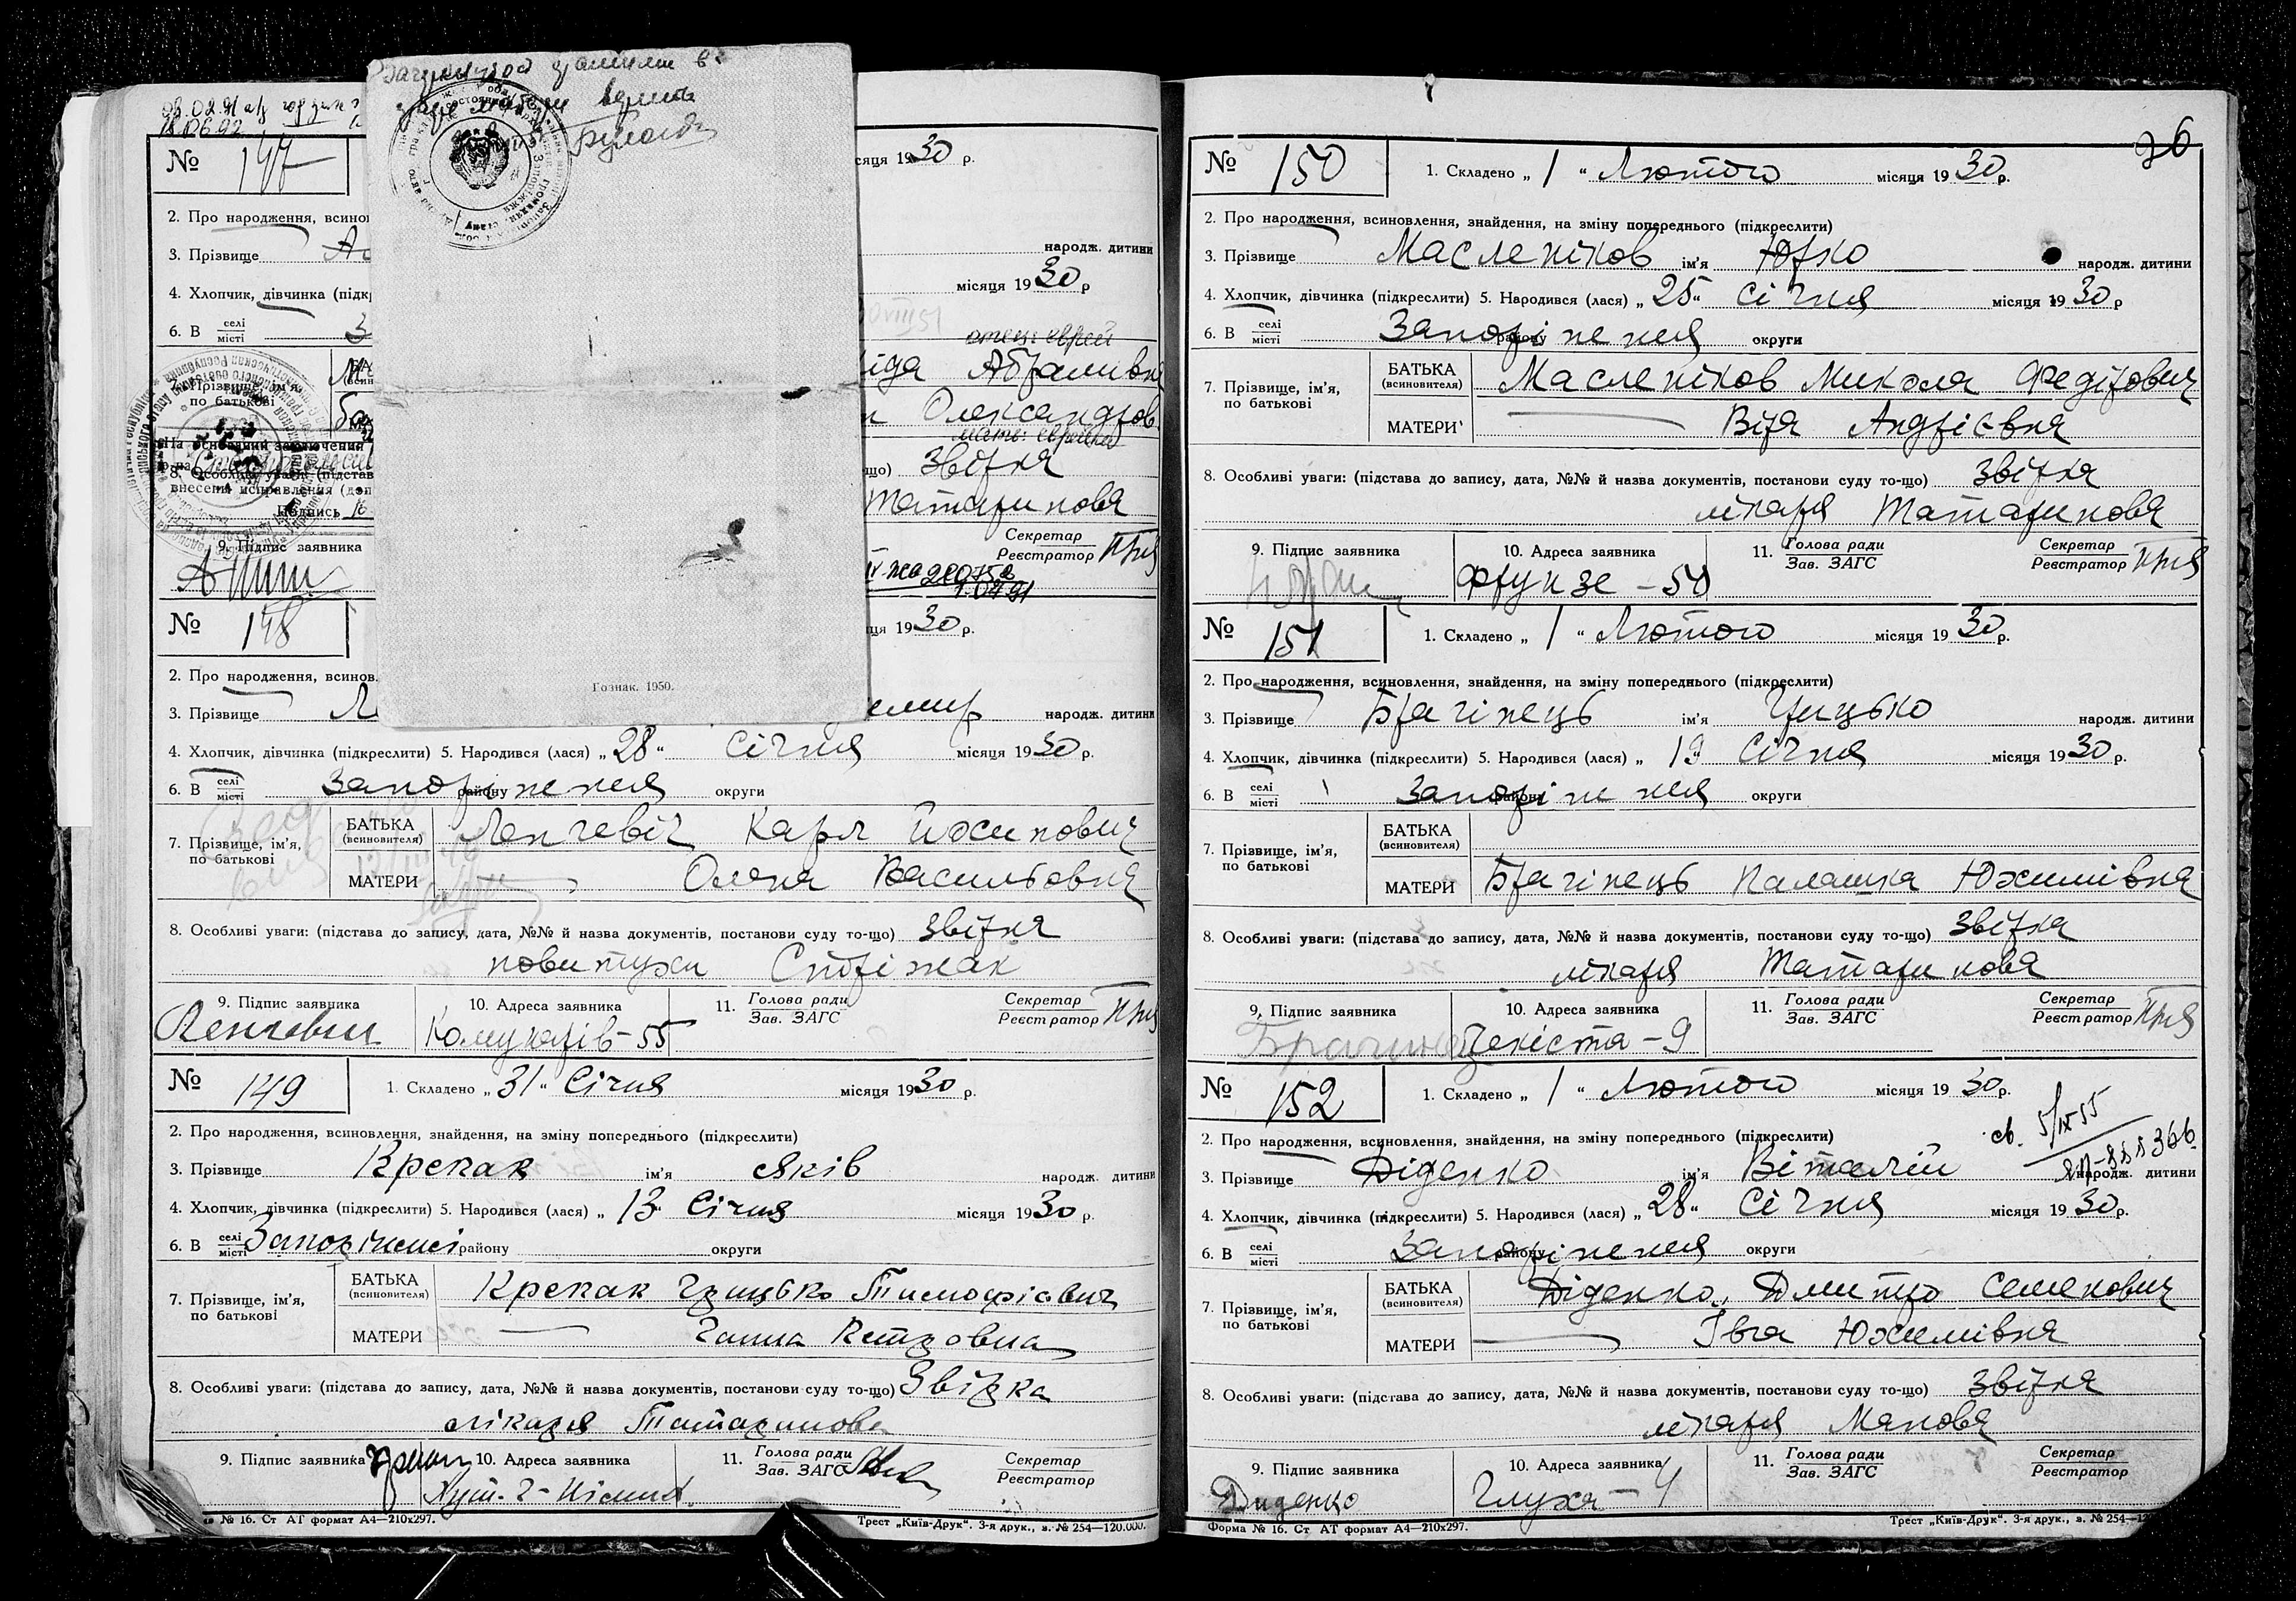 № 147
сяця 1930 р.
2. Про народження, всинов
3. Прізвище
народж. дитини
4. Хлопчик, дівчинка (підк
місяця 1930 р
6. В селі місті
отец: еврей
7. Прізвище, ім'я, по батькові
Абрамівна
Олександров
мать: еврейка
На основании заключения
8. Особливі уваги: (підстав
що) Звітка
внесены исправления (доп
Татаринова
Подпись
9. Підпис заявника
Секретар
Реєстратор
Гознак. 1950.
№ 148
ця 1930 р.
2. Про народження, всинов.
3. Прізвище
народж. дитини
4. Хлопчик, дівчинка (підкреслити) 5. Народився (лася) „28“ Січня місяця 1930 р.
6. В селі місті Запоріжжя району округи
7. Прізвище, ім'я, по батькові
БАТЬКА (всиновителя) Ленчевіч Карл Йосипович
МАТЕРИ Олена Васильовна
8. Особливі уваги: (підстава до запису, дата, №№ й назва документів, постанови суду то-що) Звітка
повитухи Стріжак
9. Підпис заявника 10. Адреса заявника 11. Голова ради Зав. ЗАГС Секретар Реєстратор
Ленчевич Комунарів-55
№ 149
1. Складено „31“ Січня місяця 1930 р.
2. Про народження, всиновлення, знайдення, на зміну попереднього (підкреслити)
3. Прізвище Крекак ім'я Яків народж. дитини
4. Хлопчик, дівчинка (підкреслити) 5. Народився (лася) „13“ Січня місяця 1930 р.
6. В селі місті Запоріжжі району округи
7. Прізвище, ім'я, по батькові
БАТЬКА (всиновителя) Крекак Грицько Тимофієвич
МАТЕРИ Ганна Петровна
8. Особливі уваги: (підстава до запису, дата, №№ й назва документів, постанови суду то-що) Звірка
лікаря Татаринова
9. Підпис заявника 10. Адреса заявника 11. Голова ради Зав. ЗАГС Секретар Реєстратор
№ 16. Ст АТ формат А4—210х297.
Трест „Київ-Друк“. 3-я друк., в. № 254—120.000.
№ 150
1. Складено „1“ Лютого місяця 1930 р.
2. Про народження, всиновлення, знайдення, на зміну попереднього (підкреслити)
3. Прізвище Масленіков ім'я Юрко народж. дитини
4. Хлопчик, дівчинка (підкреслити) 5. Народився (лася) „25“ Січня місяця 1930 р
6. В селі місті Запоріжжя району округи
7. Прізвище, ім'я, по батькові
БАТЬКА (всиновителя) Масленіков Микола Федірович
МАТЕРИ Віра Андрієвна
8. Особливі уваги: (підстава до запису, дата, №№ й назва документів, постанови суду то-що) Звітка
лікаря Татаринова
9. Підпис заявника 10. Адреса заявника 11. Голова ради Зав. ЗАГС Секретар Реєстратор
Фрунзе - 50
№ 151
1. Складено „1“ Лютого місяця 1930 р.
2. Про народження, всиновлення, знайдення, на зміну попереднього (підкреслити)
3. Прізвище Брагінець ім'я Грицько народж. дитини
4. Хлопчик, дівчинка (підкреслити) 5. Народився (лася) „19“ Січня місяця 1930 р.
6. В селі місті Запоріжжя району округи
7. Прізвище, ім'я, по батькові
БАТЬКА (всиновителя)
МАТЕРИ Брагінець Палашка Юхимівна
8. Особливі уваги: (підстава до запису, дата, №№ й назва документів, постанови суду то-що) Звітка
лікаря Татаринова
9. Підпис заявника 10. Адреса заявника 11. Голова ради Зав. ЗАГС Секретар Реєстратор
Чекіста - 9
№ 152
1. Складено „1“ Лютого місяця 1930 р.
2. Про народження, всиновлення, знайдення, на зміну попереднього (підкреслити)
3. Прізвище Діденко ім'я Віталій народж. дитини
4. Хлопчик, дівчинка (підкреслити) 5. Народився (лася) „28“ Січня місяця 1930 р.
6. В селі місті Запоріжжя району округи
7. Прізвище, ім'я, по батькові
БАТЬКА (всиновителя) Діденко, Дмитро Семенович
МАТЕРИ Івга Юхимівна
8. Особливі уваги: (підстава до запису, дата, №№ й назва документів, постанови суду то-що) Звітка
лікаря Манова
9. Підпис заявника 10. Адреса заявника 11. Голова ради Зав. ЗАГС Секретар Реєстратор
Диденко Глуха - 4
Форма № 16. Ст АТ формат А4—210х297.
Трест „Київ-Друк“. 3-я друк., в. № 254—12